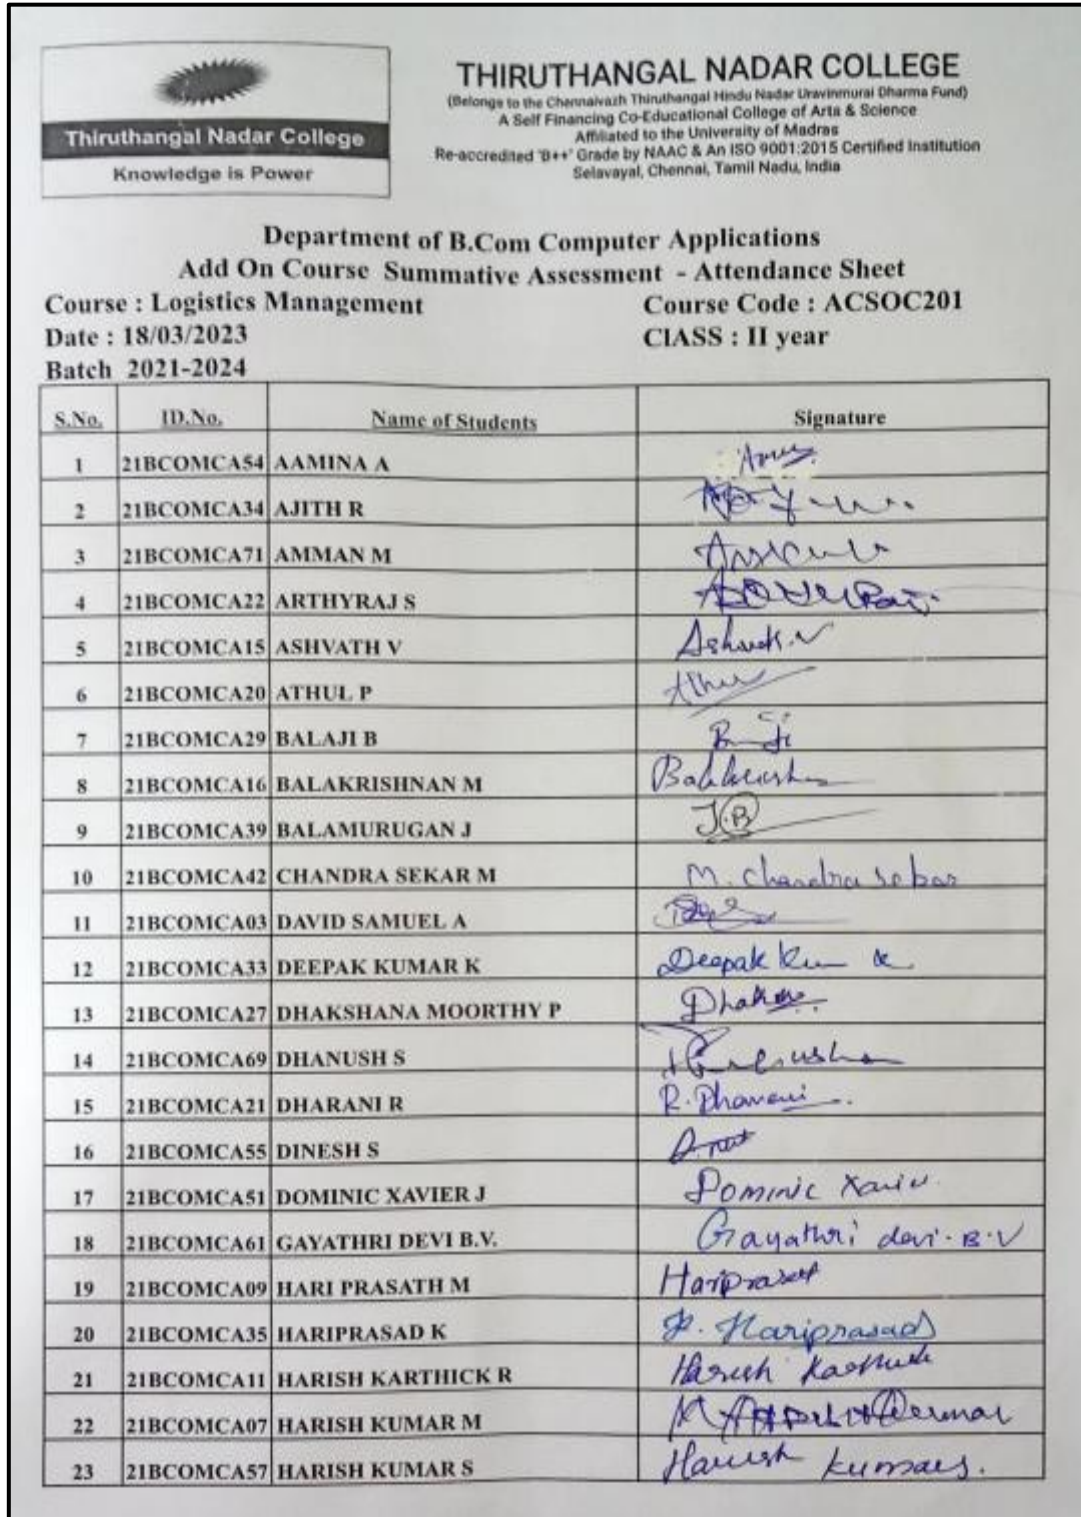 Thiruthangal Nadar College
Knowledge is Power
THIRUTHANGAL NADAR COLLEGE
(Belongs to the Chennaivazh Thiruthangal Hindu Nadar Uravinmurai Dharma Fund)
A Self Financing Co-Educational College of Arts & Science
Affiliated to the University of Madras
Re-accredited 'B++' Grade by NAAC & An ISO 9001:2015 Certified Institution
Selavayal, Chennai, Tamil Nadu, India
Department of B.Com Computer Applications
Add On Course Summative Assessment - Attendance Sheet
Course : Logistics Management Course Code : ACSOC201
Date : 18/03/2023 ClASS : II year
Batch 2021-2024
S.No. ID.No. Name of Students Signature
1 21BCOMCA54 AAMINA A
2 21BCOMCA34 AJITH R
3 21BCOMCA71 AMMAN M
4 21BCOMCA22 ARTHYRAJ S
5 21BCOMCA15 ASHVATH V
6 21BCOMCA20 ATHUL P
7 21BCOMCA29 BALAJI B
8 21BCOMCA16 BALAKRISHNAN M
9 21BCOMCA39 BALAMURUGAN J J.B
10 21BCOMCA42 CHANDRA SEKAR M M. Chandra sekar
11 21BCOMCA03 DAVID SAMUEL A
12 21BCOMCA33 DEEPAK KUMAR K Deepak
13 21BCOMCA27 DHAKSHANA MOORTHY P
14 21BCOMCA69 DHANUSH S
15 21BCOMCA21 DHARANI R R. Dharani
16 21BCOMCA55 DINESH S
17 21BCOMCA51 DOMINIC XAVIER J Dominic
18 21BCOMCA61 GAYATHRI DEVI B.V. Gayathri devi. B.V
19 21BCOMCA09 HARI PRASATH M
20 21BCOMCA35 HARIPRASAD K K. Hariprasad
21 21BCOMCA11 HARISH KARTHICK R
22 21BCOMCA07 HARISH KUMAR M
23 21BCOMCA57 HARISH KUMAR S